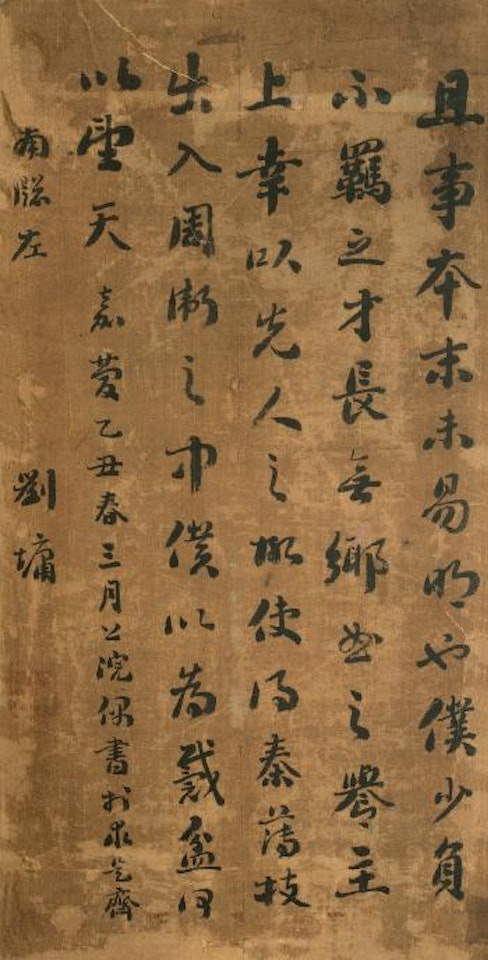 且事本末未易明也僕少負
不羈之才長無鄉曲之譽主
上幸以先人之故使得奏薄技
出入周衛之中僕以為戴盆何
以望天 嘉慶乙丑春三月上浣偶書於齋
南牕左 劉墉